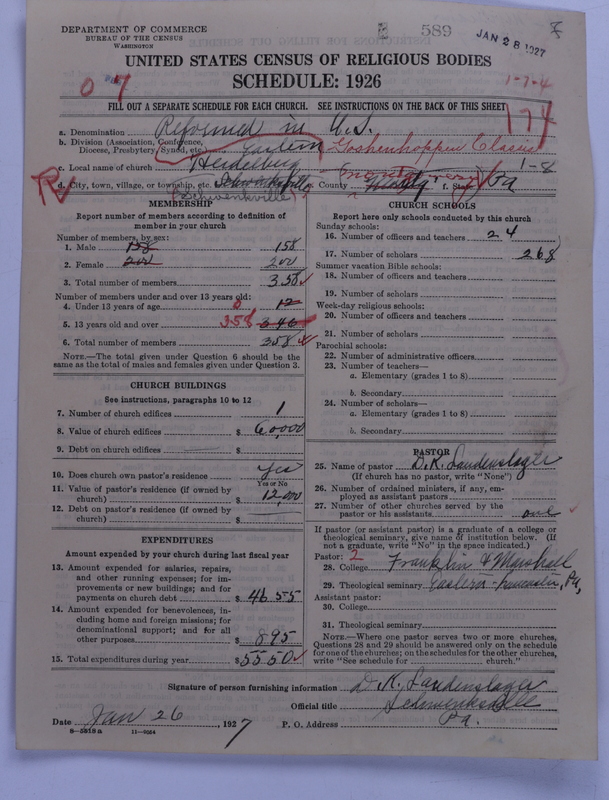 DEPARTMENT OF COMMERCE
BUREAU OF THE CENSUS
WASHINGTON
589
JAN 28 1927
UNITED STATES CENSUS OF RELIGIOUS BODIES
SCHEDULE: 1926
0 7
1-7-4
FILL OUT A SEPARATE SCHEDULE FOR EACH CHURCH. SEE INSTRUCTIONS ON THE BACK OF THIS SHEET
174
a. Denomination Reformed in U.S.
b. Division (Association, Conference, Diocese, Presbytery, Synod, etc.) Eastern Goshenhoppen Classis
c. Local name of church Heidelberg 1-8
d. City, town, village, or township, etc. Schwenksville e. County Montgomery f. State Pa
(Schwenkville)
MEMBERSHIP
Report number of members according to definition of
member in your church
Number of members, by sex:
1. Male 158 158
2. Female 200 200
3. Total number of members 358
Number of members under and over 13 years old:
4. Under 13 years of age 0 12
5. 13 years old and over 358 346
6. Total number of members 358
NOTE.—The total given under Question 6 should be the
same as the total of males and females given under Question 3.
CHURCH BUILDINGS
See instructions, paragraphs 10 to 12
7. Number of church edifices 1
8. Value of church edifices $ 60,000
9. Debt on church edifices $
10. Does church own pastor's residence Yes
Yes or No
11. Value of pastor's residence (if owned by
church) $ 12,000
12. Debt on pastor's residence (if owned by
church) $
EXPENDITURES
Amount expended by your church during last fiscal year
13. Amount expended for salaries, repairs,
and other running expenses; for im-
provements or new buildings; and for
payments on church debt $ 4655
14. Amount expended for benevolences, in-
cluding home and foreign missions; for
denominational support; and for all
other purposes $ 895
15. Total expenditures during year $ 5550
CHURCH SCHOOLS
Report here only schools conducted by this church
Sunday schools:
16. Number of officers and teachers 24
17. Number of scholars 268
Summer vacation Bible schools:
18. Number of officers and teachers
19. Number of scholars
Week-day religious schools:
20. Number of officers and teachers
21. Number of scholars
Parochial schools:
22. Number of administrative officers
23. Number of teachers—
a. Elementary (grades 1 to 8)
b. Secondary
24. Number of scholars—
a. Elementary (grades 1 to 8)
b. Secondary
PASTOR
25. Name of pastor D. K. Laudenslager
(If church has no pastor, write "None")
26. Number of ordained ministers, if any, em-
ployed as assistant pastors
27. Number of other churches served by the
pastor or his assistants one
If pastor (or assistant pastor) is a graduate of a college or
theological seminary, give name of institution below. (If
not a graduate, write "No" in the space indicated.)
Pastor: 2
28. College Franklin & Marshall
29. Theological seminary Eastern - Lancaster, Pa,
Assistant pastor:
30. College
31. Theological seminary
NOTE.—Where one pastor serves two or more churches,
Questions 28 and 29 should be answered only on the schedule
for one of the churches; on the schedules for the other churches,
write "See schedule for church."
Signature of person furnishing information D. K. Laudenslager
Official title Schwenksville
Date Jan 26 1927 P. O. Address Pa.
8—5518a 11—9054